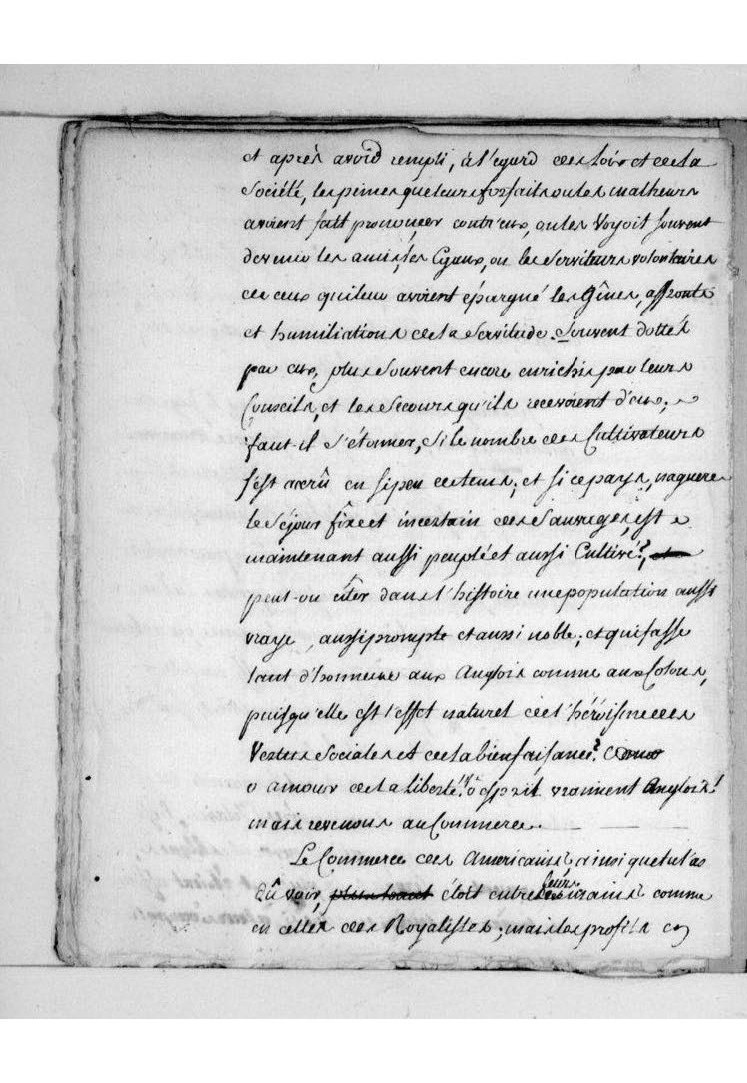 et après avoir rempli, à l'egard des loix et de la
Société, les peines que leurs forfaits ou les malheurs
avoient fait prononçer contr'eux, on les Voyoit souvent
devenir les amis, les Egaux, ou les Serviteurs volontaires
de ceux qui leur avoient épargné les Gênes, affronts
et humiliations de la Servitude. Souvent dottés
par eux, plus Souvent encore enrichis par leurs
Conseils, et les Secours qu'ils recevoient d'eux;
faut-il s'étonner, si le nombre des Cultivateurs
s'est accrû en si peu de tems; et si ce pays, naguere
le Séjour fixe et incertain des Sauvages, est
maintenant aussi peuplé et aussi Cultivé?,
peut-on citer dans l'histoire une population aussi
vraye, aussi prompte et aussi noble; et qui fasse
tant d'honneur aux Anglois comme aux Colons,
puisqu'elle est l'effet naturel de l'héroïsme des
Vertus Sociales et de la bienfaisance?
o amour de la Liberté! ô esprit vraiment Anglois!
mais revenons au Commerce.
Le Commerce des Americains ainsi que tu l'as
dû voir, étoit entre leurs mains comme
en celles des Royalistes; mais les profits en